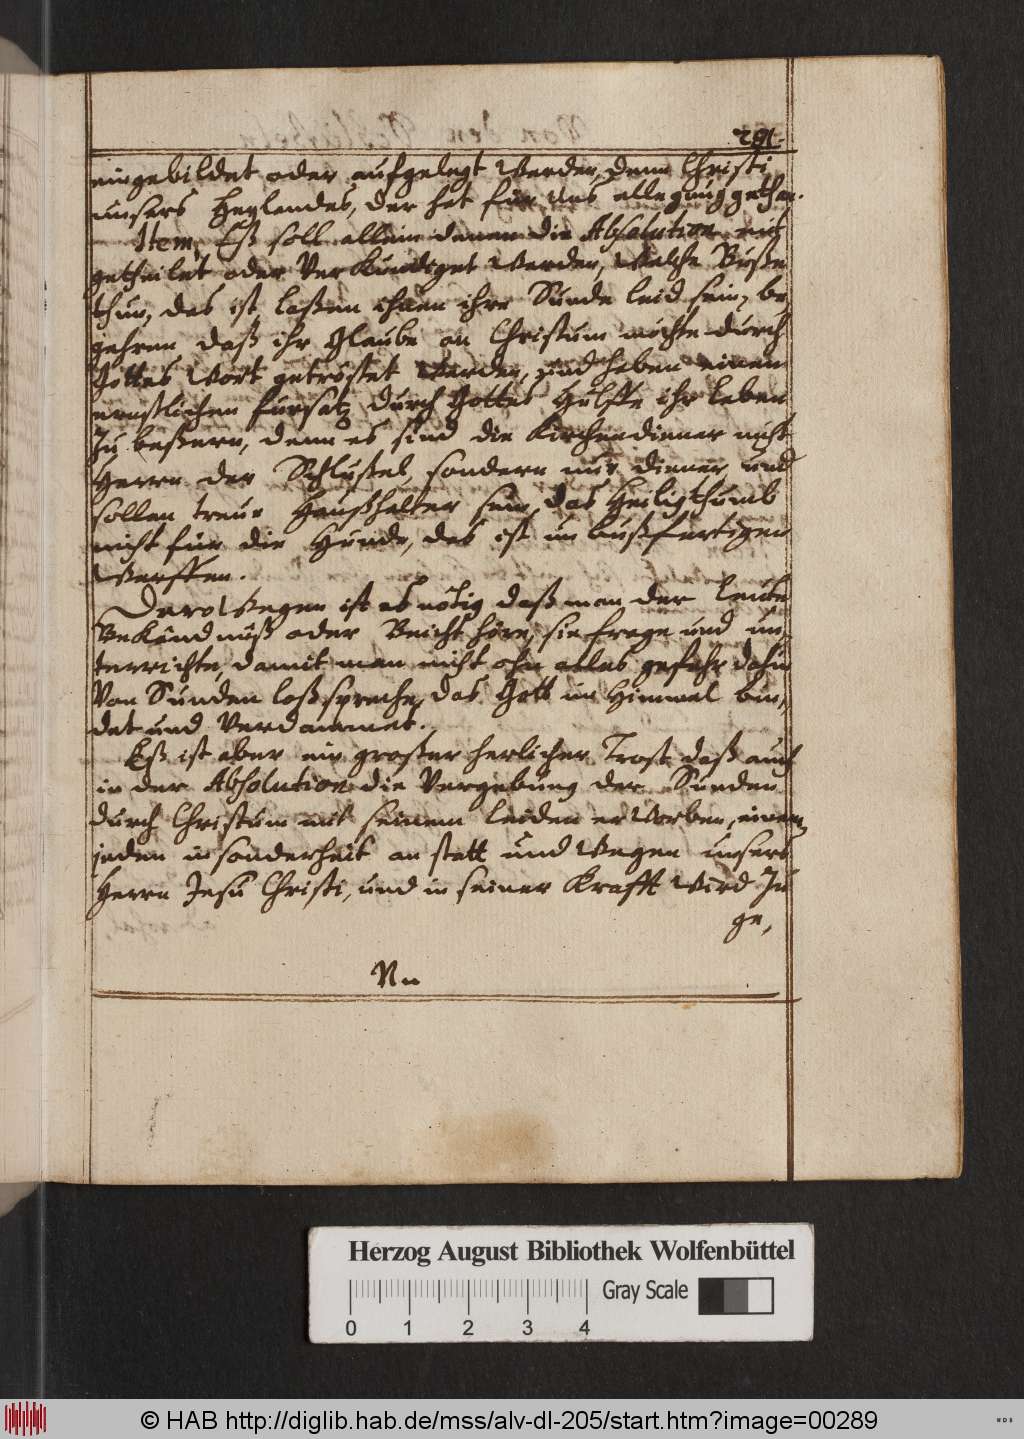 291.
eingebildet oder auffgelegt werden, denn Christi
unsers Heylandes, der hat für uns alle gnug gethan.
Item, Eß soll allein denen die Absolution mit
getheilet oder Verkündiget werden, welche Buße
thun, das ist, laßen ihnen ihre Sünde leid sein, be,
gehren daß ihr Glaube an Christum möchte durch
Gottes Wort getröstet werden, und haben einen
ernstlichen fürsatz durch Gottes Hülffe ihr leben
zu beßern, denn es sind die Kirchendiener nicht
Herrn der Schlüßel, sondern nur diener und
sollen treue Haußhalter sein, das Heiligthumb
nicht für die Hunde, das ist unbußfertigen
Werffen.
Dero Wegen ist es nötig daß man der leute
Bekändnüß oder Beicht höre, sie frage und un,
terrichte, damit man nicht ohn alles gefehr dahin
Von Sünden loßspreche, das Gott im Himmel bin,
det und Verdammet.
Eß ist aber ein großer herlicher Trost daß auch
in der Absolution die Vergebung der Sünden
durch Christum mit seinem leiden erworben, einem
jeden in sonderheit an statt und Wegen unsers
Herrn Jesu Christi, und in seiner Krafft wird zu
ge,
Nn
Herzog August Bibliothek Wolfenbüttel
Gray Scale
0 1 2 3 4
© HAB http://diglib.hab.de/mss/alv-dl-205/start.htm?image=00289